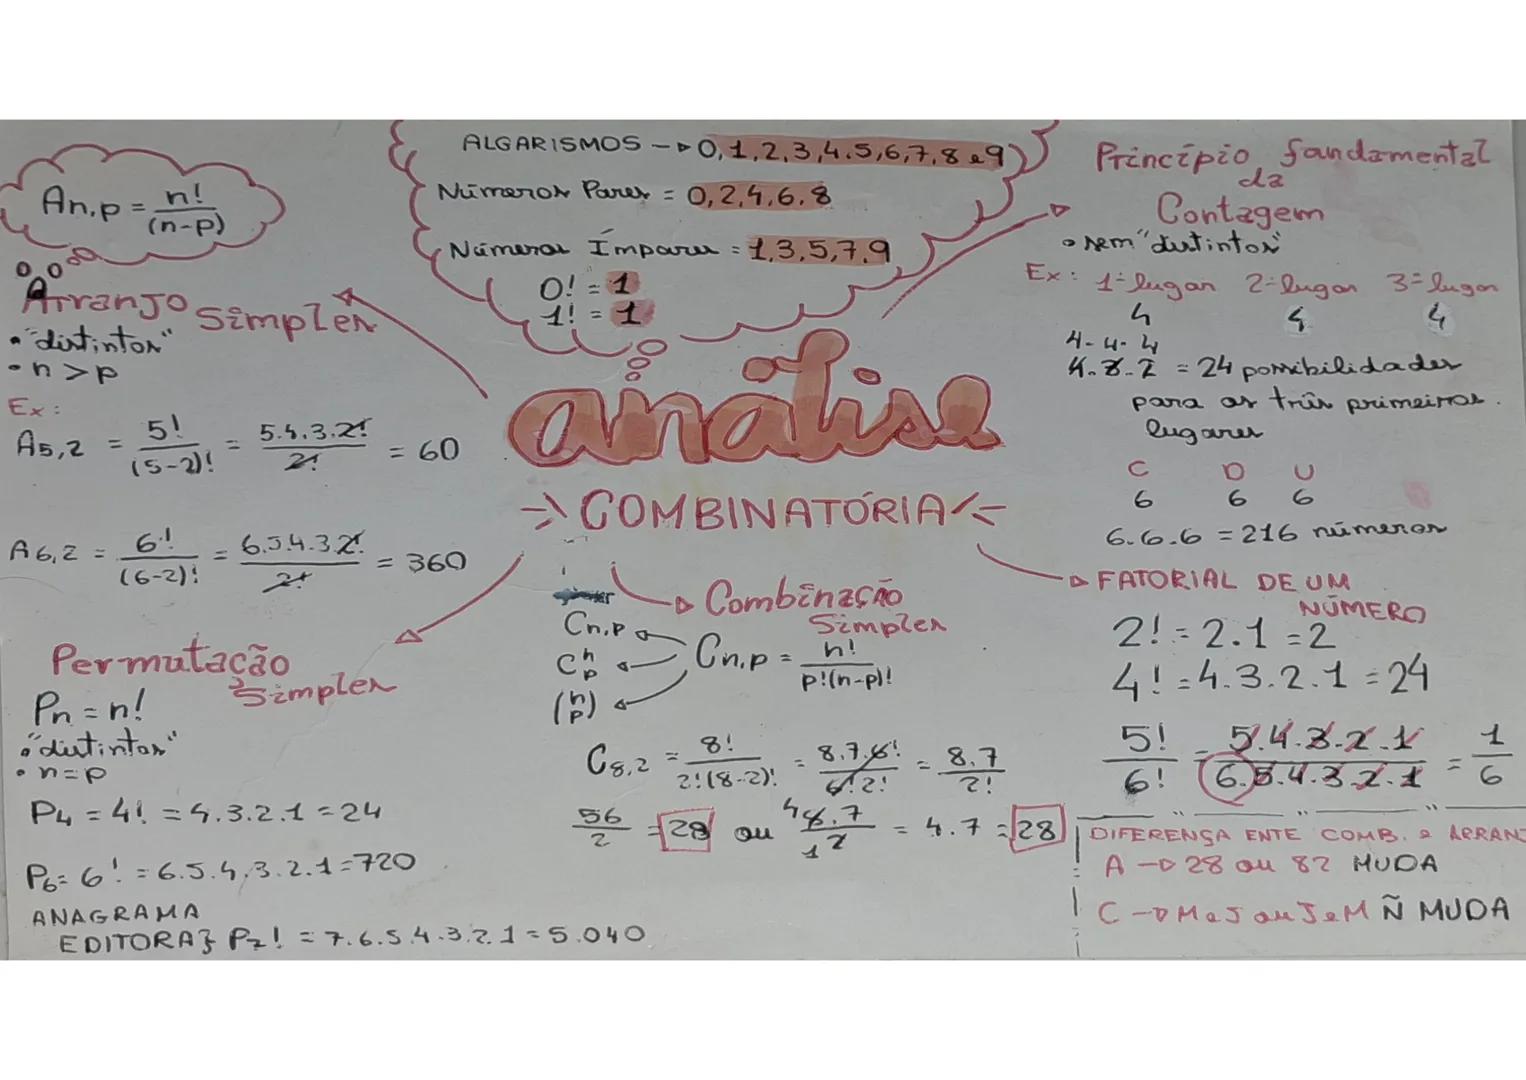 ALGARISMOS → 0,1,2,3,4.5,6,7,8 e 9
Números Pares = 0,2,4,6.8
Números Ímpares = 1,3,5,7,9
0! = 1
1! = 1
An,p = n!/(n-p)
Arranjo Simples
• "distintos"
• n > p
Ex:
A5,2 = 5!/(5-2)! = 5.4.3.2!/2! = 60
A6,2 = 6!/(6-2)! = 6.5.4.3.2!/2! = 360
Permutação Simples
Pn = n!
• "distintos"
• n = p
P4 = 4! = 4.3.2.1 = 24
P6 = 6! = 6.5.4.3.2.1 = 720
ANAGRAMA
EDITORA} P7! = 7.6.5.4.3.2.1 = 5.040
análise
COMBINATÓRIA
Combinação Simples
Cn,p
C n p
(n p)
Cn,p = n!/p!(n-p)!
C8,2 = 8!/2!(8-2)! = 8.7.6!/6!2! = 8.7/2!
56/2 = 28 ou 4 8.7/1 2 = 4.7 = 28
Princípio fundamental
da
Contagem
• sem "distintos"
Ex: 1º lugar 2º lugar 3º lugar
4 4 4
4-4-4
4.3.2 = 24 possibilidades
para os três primeiros.
lugares
C D U
6 6 6
6.6.6 = 216 números
FATORIAL DE UM
NÚMERO
2! = 2.1 = 2
4! = 4.3.2.1 = 24
5!/6! = 5.4.3.2.1/6.5.4.3.2.1 = 1/6
DIFERENÇA ENTE COMB. e ARRANJ
A → 28 ou 82 MUDA
C → M e J ou J e M Ñ MUDA